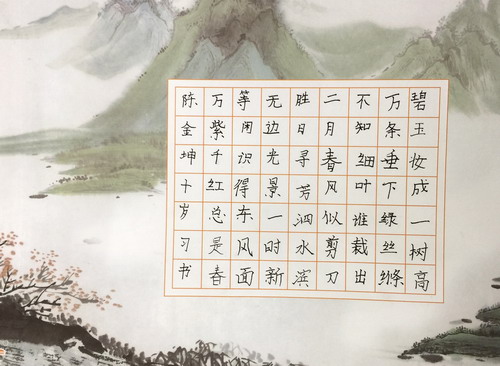 碧玉妆成一树高
万条垂下绿丝绦
不知细叶谁裁出
二月春风似剪刀
胜日寻芳泗水滨
无边光景一时新
等闲识得东风面
万紫千红总是春
陈金坤十岁习书